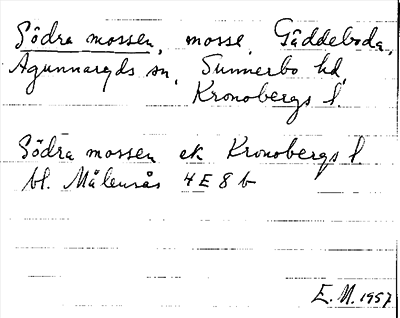 Södra mossen, mosse, Gäddeboda,
Agunnaryds sn, Sunnerbo hd,
Kronobergs l.
Södra mossen ek Kronobergs l
bl. Målensås 4 E 8 b
E. N. 1957